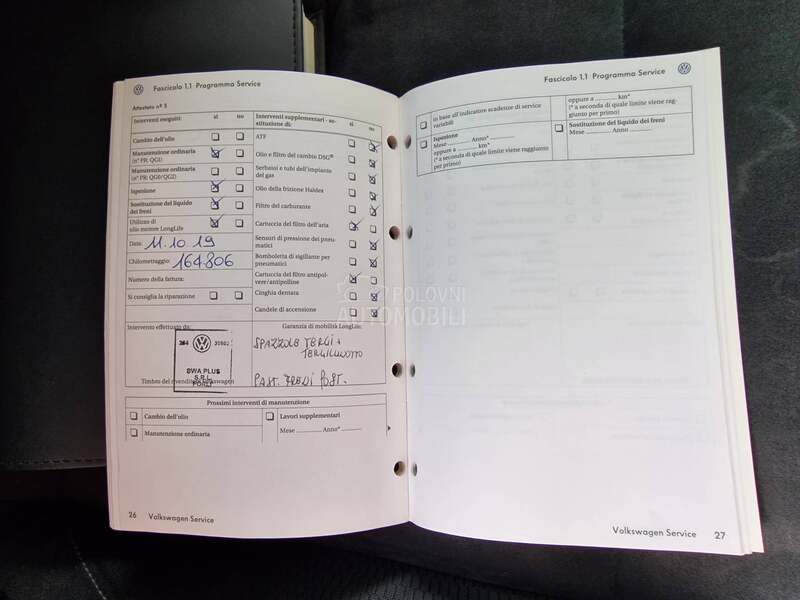 Fascicolo 1.1 Programma Service
Attestato nº 5
Interventi eseguiti:
sì
no
Cambio dell'olio
Manutenzione ordinaria
(nº PR QG1)
Manutenzione ordinaria
(nº PR QG0/QG2)
Ispezione
Sostituzione del liquido
dei freni
Utilizzo di
olio motore LongLife
Data: 11.10.19
Chilometraggio: 164806
Numero della fattura:
Si consiglia la riparazione
Interventi supplementari - so-
stituzione di:
sì
no
ATF
Olio e filtro del cambio DSG®
Serbatoi e tubi dell'impianto
del gas
Olio della frizione Haldex
Filtro del carburante
Cartuccia del filtro dell'aria
Sensori di pressione dei pneu-
matici
Bomboletta di sigillante per
pneumatici
Cartuccia del filtro antipol-
vere/antipolline
Cinghia dentata
Candele di accensione
POLOVNI
AUTOMOBILI
Intervento effettuato da:
SWA PLUS
S.R.L.
FORLI'
Timbro del rivenditore Volkswagen
Garanzia di mobilità LongLife:
SPAZZOLE TERGI +
TERGILUNOTTO
PAST. FRENI POST.
Prossimi interventi di manutenzione
Cambio dell'olio
Manutenzione ordinaria
Lavori supplementari
Mese Anno*
26 Volkswagen Service
Fascicolo 1.1 Programma Service
in base all'indicatore scadenze di service
variabili
Ispezione
Mese Anno*
oppure a km*
(* a seconda di quale limite viene raggiunto
per primo)
oppure a km*
(* a seconda di quale limite viene rag-
giunto per primo)
Sostituzione del liquido dei freni
Mese Anno
Volkswagen Service 27